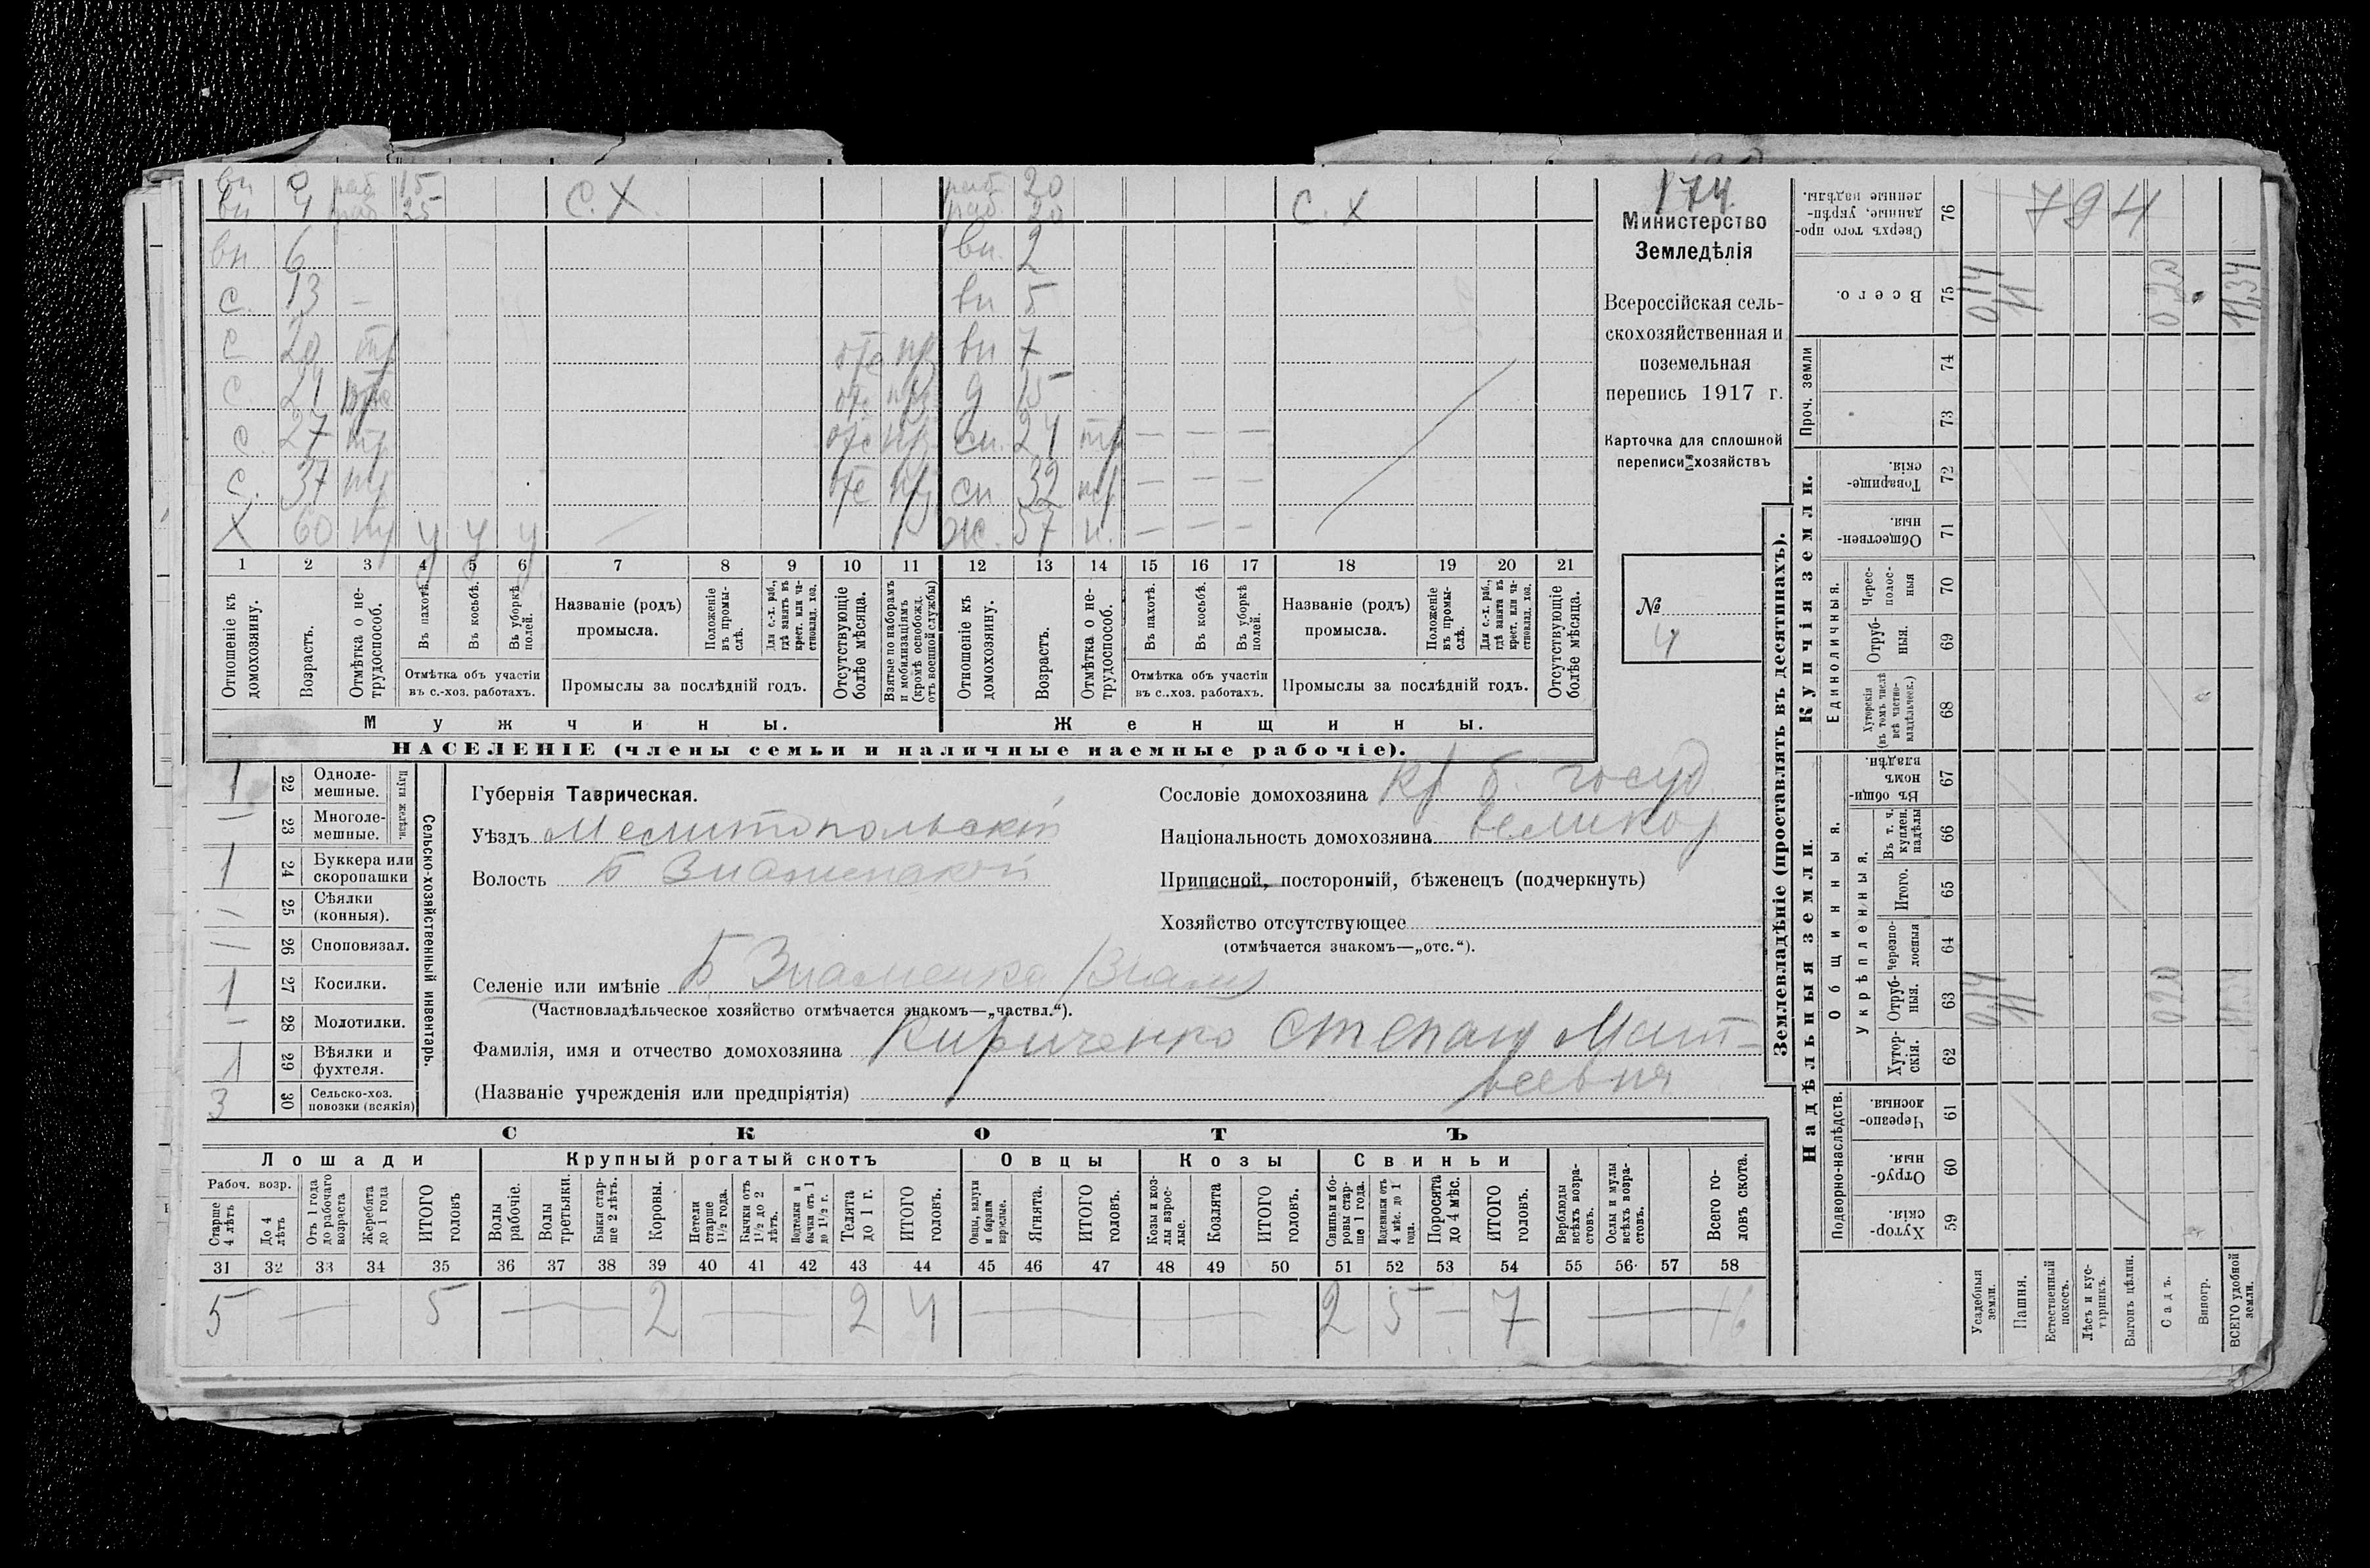 вн 9 раб 15 С.Х. раб 20 С. Х
вн 4 раб 25 раб 20
вн 6 вн. 2
С. 13 — вн 5
С 20 пр отс пр вн 7
С. 21 отс пр д 15
С. 27 пр отс пр сн. 24 пр — — —
С. 37 пр отс пр сн 32 пр — — —
Х 60 пр у у у — Ж. 57 п. — — —
1 2 3 4 5 6 7 8 9 10 11 12 13 14 15 16 17 18 19 20 21
Отношеніе къ домохозяину.
Возрастъ.
Отмѣтка о не-трудоспособ.
Въ пахотѣ.
Въ косьбѣ.
Въ уборкѣ полей.
Отмѣтка объ участіи
въ с.-хоз. работахъ.
Названіе (родъ)
промысла.
Положеніе въ промы-слѣ.
Для с.-х. раб., гдѣ занятъ въ крест. или ча-стновлад. хоз.
Промыслы за послѣдній годъ.
Отсутствующіе болѣе мѣсяца.
Взятые по наборамъ и мобилизаціямъ (кромѣ освобожд. отъ военной службы)
Отношеніе къ домохозяину.
Возрастъ.
Отмѣтка о не-трудоспособ.
Въ пахотѣ.
Въ косьбѣ.
Въ уборкѣ полей.
Отмѣтка объ участіи
въ с.-хоз. работахъ.
Названіе (родъ)
промысла.
Положеніе въ промы-слѣ.
Для с.-х. раб., гдѣ занята въ крест. или ча-стновлад. хоз.
Промыслы за послѣдній годъ.
Отсутствующіе болѣе мѣсяца.
Мужчины. Женщины.
НАСЕЛЕНІЕ (члены семьи и наличные наемные рабочіе).
174.
Министерство
Земледѣлія
Всероссійская сель-
скохозяйственная и
поземельная
перепись 1917 г.
Карточка для сплошной
переписи хозяйствъ
№
4
1 22 Одноле-мешные.
— 23 Многоле-мешные.
Плуги желѣзн.
1 24 Буккера или скоропашки
— 25 Сѣялки (конныя).
— 26 Сноповязал.
1 27 Косилки.
— 28 Молотилки.
1 29 Вѣялки и фухтеля.
3 30 Сельско-хоз. повозки (всякія)
Сельско-хозяйственный инвентарь.
Губернія Таврическая.
Уѣздъ Мелитопольскій
Волость Б Знаменской
Сословіе домохозяина кр б. госуд
Національность домохозяина великор
Приписной, посторонній, бѣженецъ (подчеркнуть)
Хозяйство отсутствующее
(отмѣчается знакомъ—„отс.“).
Селеніе или имѣніе Б Знаменка
(Частновладѣльческое хозяйство отмѣчается знакомъ—„частвл.“).
Фамилія, имя и отчество домохозяина Кириченко Степан Мат-
веевич
(Названіе учрежденія или предпріятія)
СКОТЪ
Лошади Крупный рогатый скотъ Овцы Козы Свиньи
Рабоч. возр.
Старше 4 лѣтъ
До 4 лѣтъ
Отъ 1 года до рабочаго возраста
Жеребята до 1 года
ИТОГО головъ
Волы рабочіе.
Волы третьяки.
Быки стар-ше 2 лѣтъ.
Коровы.
Нетели старше 1½ года.
Бычки отъ 1½ до 2 лѣтъ.
Подтелки и бычки отъ 1 до 1½ г.
Телята до 1 г.
ИТОГО головъ.
Овцы, валухи и бараны взрослые.
Ягнята.
ИТОГО головъ.
Козы и коз-лы взрос-лые.
Козлята
ИТОГО головъ.
Свиньи и бо-ровы стар-ше 1 года.
Подсвинки отъ 4 мѣс. до 1 года.
Поросята до 4 мѣс.
ИТОГО головъ.
Верблюды всѣхъ возра-стовъ.
Ослы и мулы всѣхъ возра-стовъ.
Всего го-ловъ скота.
31 32 33 34 35 36 37 38 39 40 41 42 43 44 45 46 47 48 49 50 51 52 53 54 55 56 57 58
5 — 5 — 2 — 2 4 — 2 5 — 7 — 16
Землевладѣніе (проставлять въ десятинахъ).
Надѣльныя земли. Купчія земли.
Подворно-наслѣдств.
Общинныя.
Укрѣпленныя.
Единоличныя.
Проч. земли
Хутор-скія. 59
Отруб-ныя. 60
Черезпо-лосныя. 61
Хутор-скія. 62
Отруб-ныя. 63
Черезпо-лосныя 64
Итого. 65
Въ т. ч. куплен. надѣлы 66
Въ общин-номъ владѣн. 67
Хуторскія (въ томъ числѣ всѣ частно-владѣльческ.) 68
Отруб-ныя. 69
Черес-полос-ныя 70
Обществен-ныя. 71
Товарище-скія. 72
73
74
Всего. 75
Сверхъ того про-данные, укрѣп-ленные надѣлы. 76
Усадебныя земли. 014 014
Пашня. 11 11
Естественный покосъ.
Лѣсъ и кус-тарникъ.
Выгонъ цѣлин.
Садъ. 020 020
Виногр.
ВСЕГО удобной земли. 11,34 11,34
794